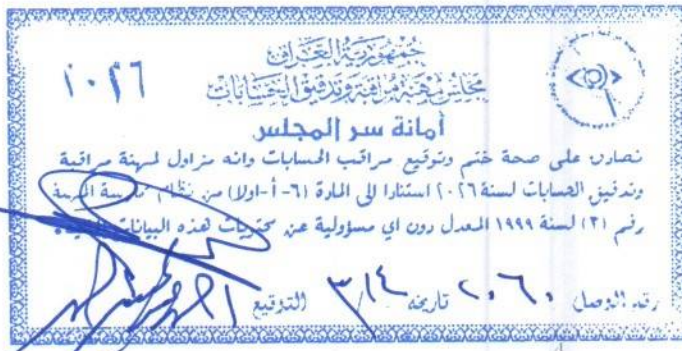 جمهورية العراق
مجلس مهنة مراقبة وتدقيق الحسابات
٢٠٢٦
أمانة سر المجلس
نصادق على صحة ختم وتوقيع مراقب الحسابات وانه مزاول لمهنة مراقبة
وتدقيق الحسابات لسنة ٢٠٢٦ استنادا الى المادة (٦-أ-اولا) من نظام المهنة
رقم (٣) لسنة ١٩٩٩ المعدل دون اي مسؤولية عن محتويات هذه البيانات
رقم الوصل ٢٠٦٠ تاريخه ٣/١٤ التوقيع